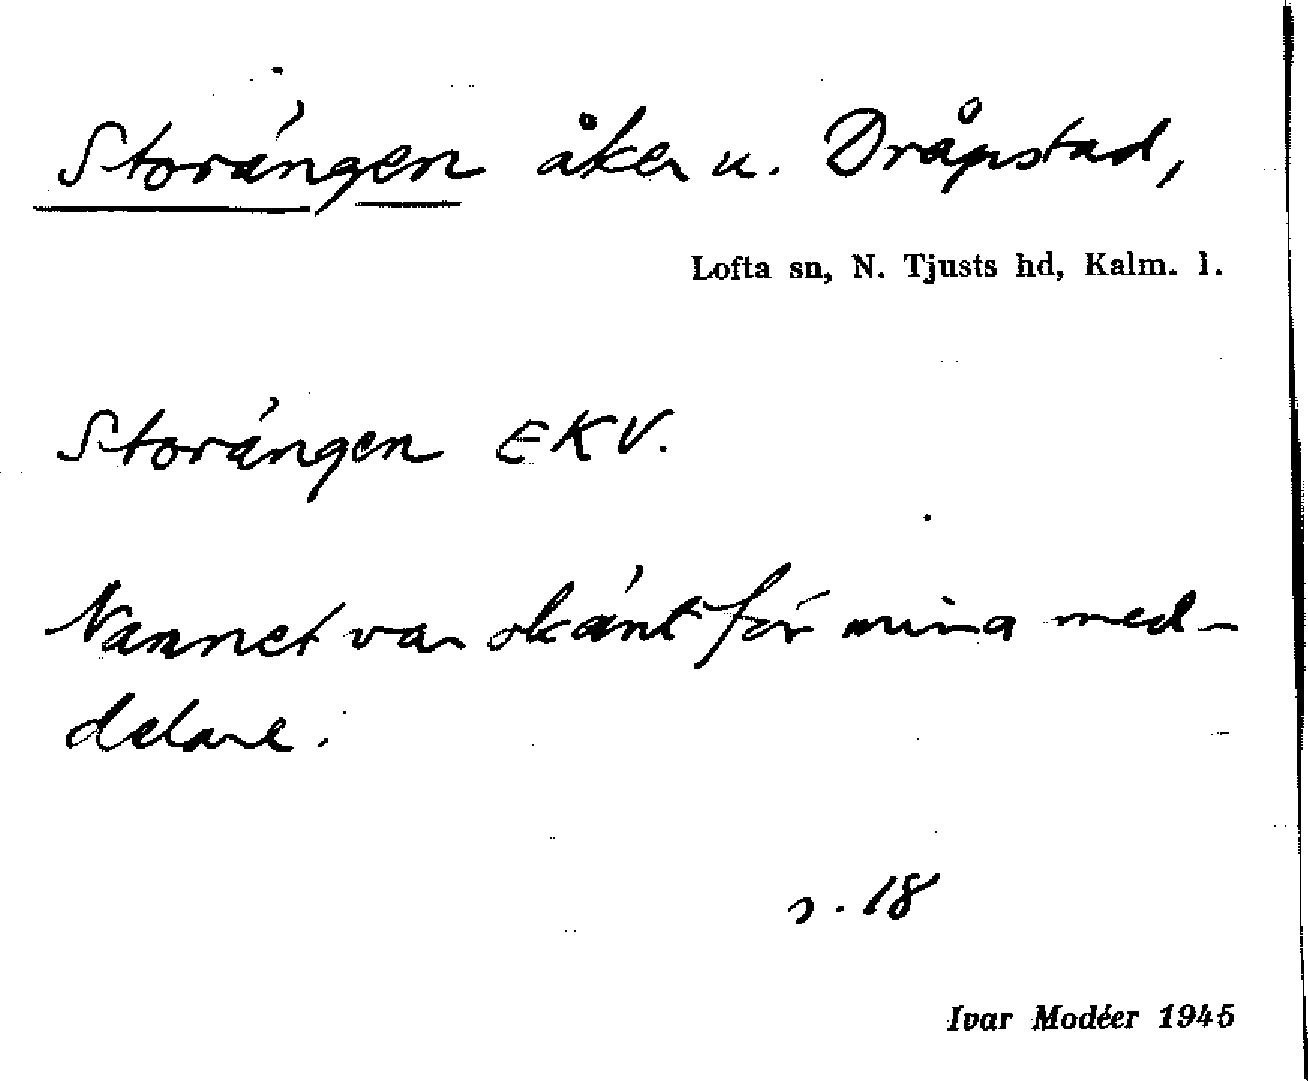 Storängen åker u. Dråpstad,
Lofta sn, N. Tjusts hd, Kalm. l.
Storängen EKV.
Namnet var okänt för mina med-
delare.
s. 18
Ivar Modéer 1945